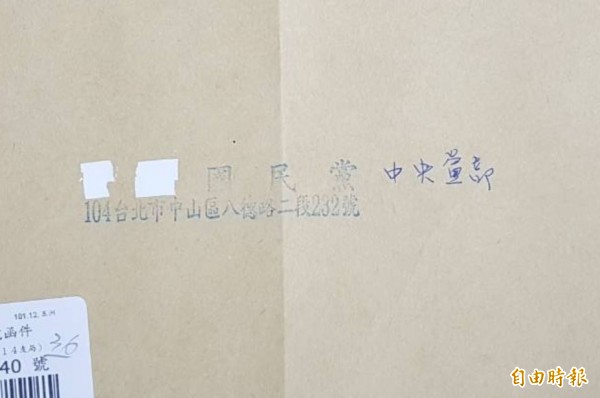 國民黨 中央黨部
104台北市中山區八德路二段232號
101.12.五洲
函件
14產局) 36
40 號
自由時報